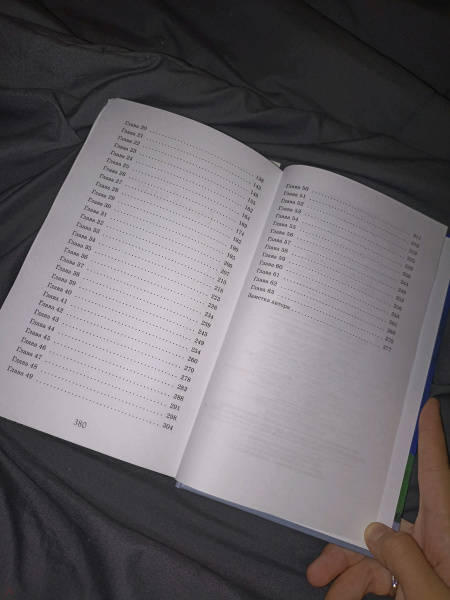 Глава 20
Глава 21 143
Глава 22 148
Глава 23 154
Глава 24
Глава 25 164
Глава 26 169
Глава 27 174
Глава 28 182
Глава 29 189
Глава 30 195
Глава 31 200
Глава 32 207
Глава 33 213
Глава 34 218
Глава 35 223
Глава 36 228
Глава 37 234
Глава 38 239
Глава 39 243
Глава 40 249
Глава 41 254
Глава 42 260
Глава 43 270
Глава 44 278
Глава 45 283
Глава 46 288
Глава 47 291
Глава 48 298
Глава 49 304
380
Глава 50
Глава 51
Глава 52
Глава 53
Глава 54
Глава 55
Глава 56
Глава 57
Глава 58
Глава 59
Глава 60
Глава 61
Глава 62
Глава 63
Заметка автора 377